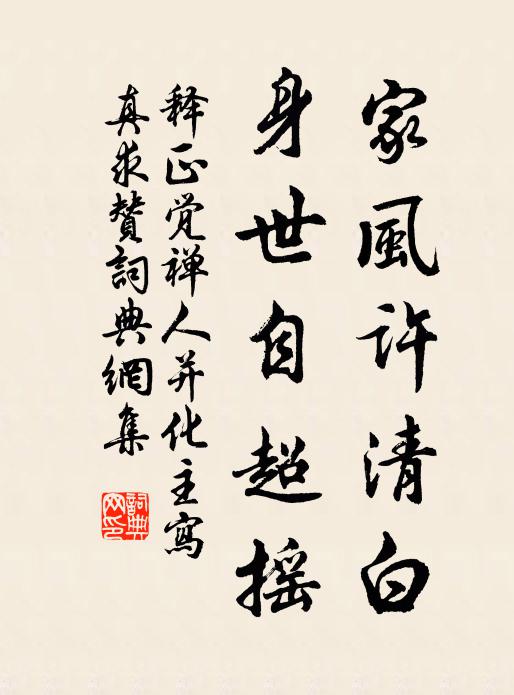 家風許清白
身世自超摇
释正觉禅人并化主寫
真求贊詞典網集
詞典網印